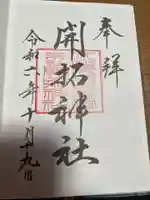 奉拝
開拓神社
令和六年十月十九日